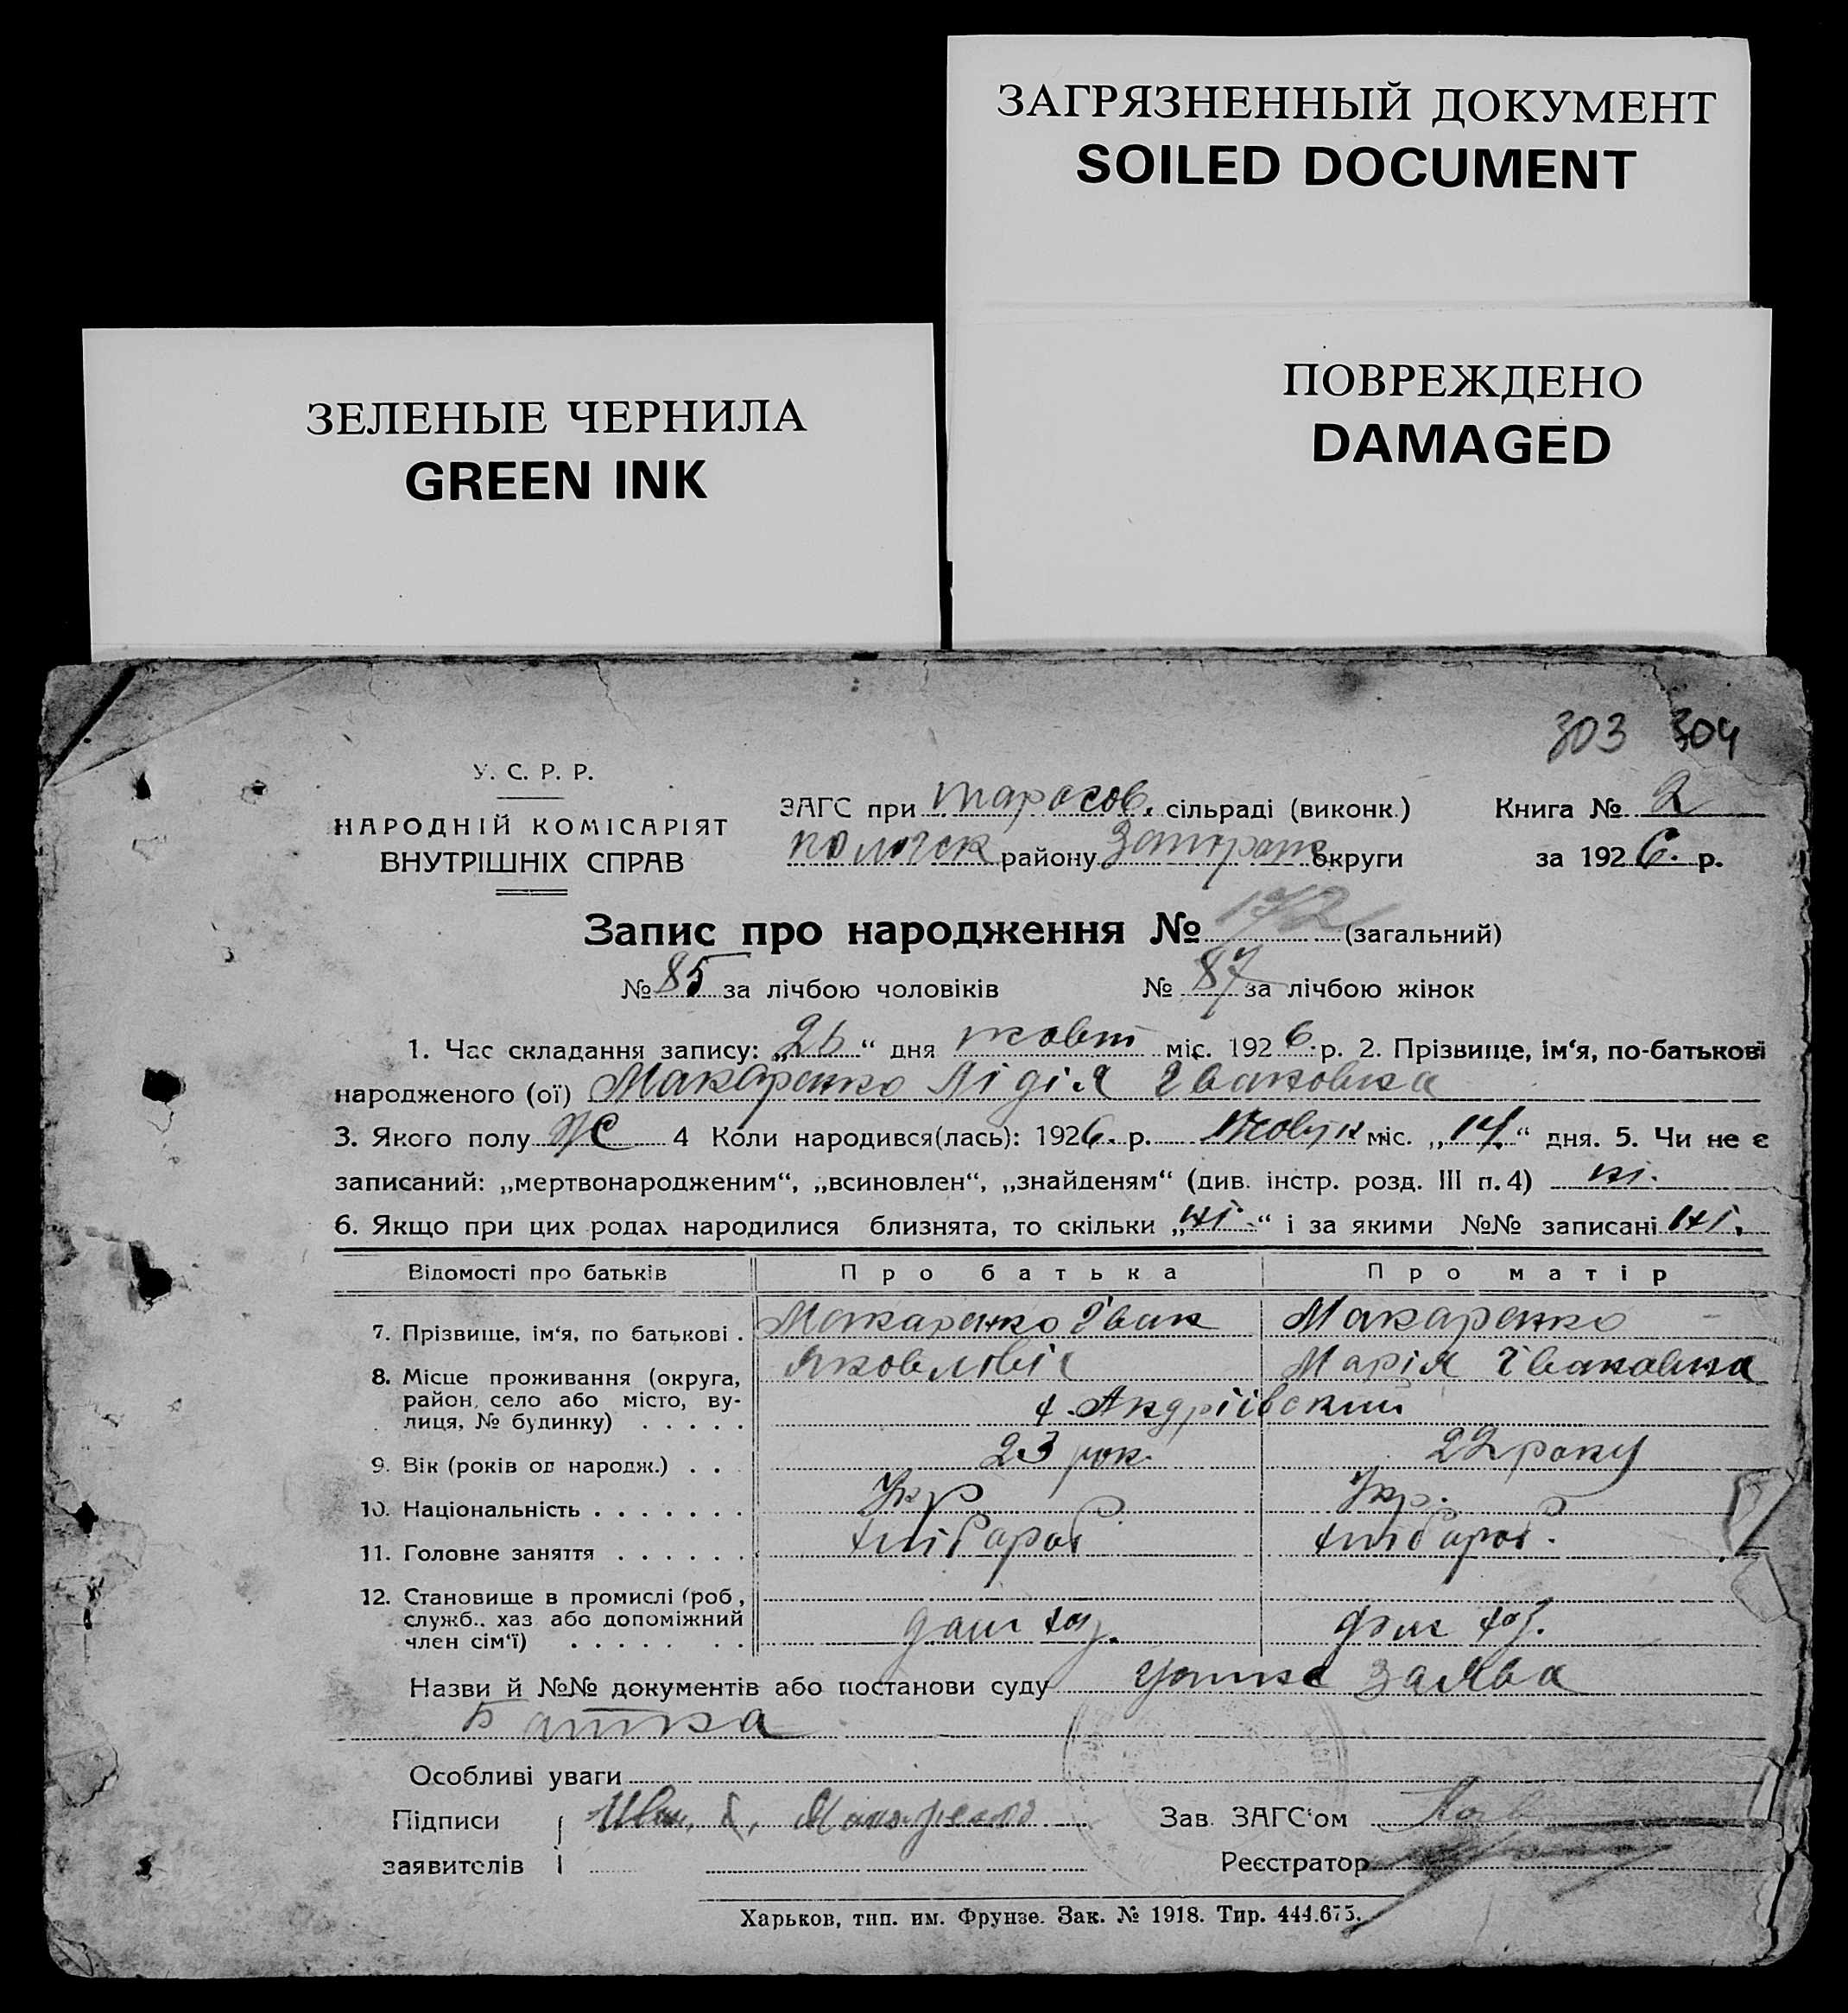 ЗАГРЯЗНЕННЫЙ ДОКУМЕНТ
SOILED DOCUMENT
ПОВРЕЖДЕНО
DAMAGED
ЗЕЛЕНЫЕ ЧЕРНИЛА
GREEN INK
303 304
У. С. Р. Р.
НАРОДНІЙ КОМІСАРІЯТ
ВНУТРІШНІХ СПРАВ
ЗАГС при Тарасов. сільраді (виконк.) Книга № 2
пологск району Запорож округи за 1926. р.
Запис про народження № 172 (загальний)
№ 85 за лічбою чоловіків № 87 за лічбою жінок
1. Час складання запису: „26“ дня жовт міс. 1926 р. 2. Прізвище, ім‘я, по-батькові
народженого (ої) Макаренко Лідія Івановна
3. Якого полу Ж 4 Коли народився(лась): 1926. р. міс. „14“ дня. 5. Чи не є
записаний: „мертвонародженим“, „всиновлен“, „знайденям“ (див. інстр. розд. III п. 4) ні.
6. Якщо при цих родах народилися близнята, то скільки „ні.“ і за якими №№ записані ні.
Відомості про батьків Про батька Про матір
7. Прізвище, ім‘я, по батькові . Макаренко Іван Макаренко
Яковлевіч Марія Івановна
8. Місце проживання (округа,
район, село або місто, ву-
лиця, № будинку) . . . . . х. Андріївский
9. Вік (років од народж.) . . 23 рок. 22 року
10. Національність . . . . . . . Укр Укр.
11. Головне заняття . . . . . . хлібороб хлібороб.
12. Становище в промислі (роб,
служб., хаз або допоміжний
член сім‘ї) . . . . . . . хаз. хаз.
Назви й №№ документів або постанови суду заява
Батька
Особливі уваги
Підписи Ив. Макаренко Зав. ЗАГС‘ом
заявителів Реєстратор
Харьков, тип. им. Фрунзе. Зак. № 1918. Тир. 444.675.